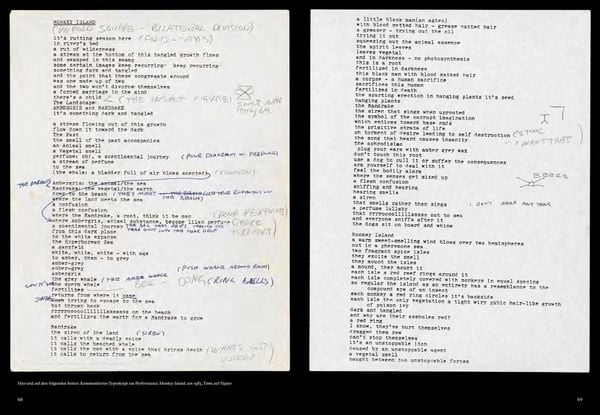 MONKEY ISLAND
(UNFOLD SQUARE - BILATERAL DIVISION)
it's rutting season here (FOLD - MAPS)
in river's bed
a rut of wilderness
a stream at the bottom of this tangled growth flows
and swamped in this swamp
some certain images keep recurring- keep recurring
something dark and tangled
and the point that these congregate around
was one made up of two
and the two won't divorce themselves
a forced marriage in the mind
there's a child
The Landscape- (THE INSECT FIGURE)
AMBERGRIS and MANDRAKE
it's something dark and tangled
a stream flowing out of this growth
flow down it toward the dark
The Past
the smell of the past accompanies
an Animal smell
a Vegetal smell
perfume; oh!, a scentisental journey (POUR DIAGRAM W. PERFUME)
a stream of perfume
: the sea
(the whale: a bladder full of air blows scented)
Ambergris: the animal/the sea
Mandrake- the vegetal/the earth
down to the beach
where the land meets the sea
a confusion
a flesh confusion
where the Mandrake, a root, think it be man (POUR PERFUME)
where Ambergris, animal substance, became lilac perfume
a scentimental journey
from this dark place
to the white expanse
the Hyperborean Sea
a garsfeld
white, white, white - with age
to amber, then - to grey
amber-grey
amber-grey
ambergris (PUSH WHALE AROUND ROOM)
the grey whale
the sperm whale DING - DONG (RING BELLS)
fertilizes
returns from where it came
from trying to escape to the sea
but thrown back
rrrrrooooolllllllssssss on the beach
and fertilizes the earth for a Mandrake to grow
Mandrake
the siren of the land (SIREN)
it calls with a deadly voice
it calls the beached whale
it calls the man with a voice that brings death (WHAT'S THAT VOICE?)
it calls to return from the sea
Hier und auf den folgenden Seiten: Kommentiertes Typoskript zur Performance Monkey Island, um 1983, Tinte auf Papier
68
a little black man (an agten)
with blood matted hair - grease matted hair
a greaser - trying out the oil
trying it out
squeezing out the animal essence
the spirit leaves
leaves vegetal
and in darkness - no photosynthesis
this is a root
fertilized in darkness
this black man with blood matted hair
a corpse - a human sacrifice
sacrifices this human
fertilizes in death
the sporting erection in hanging plants it's seed
hanging plants
the Mandrake
the siren that sings when uprooted
the symbol of the corrupt imagination
which entices toward base ends
the primitive strata of life
an torment of desire leading to self destruction
the song that heard causes insanity
the aphrodisian
plug your ears with amber grey wax
don't touch this root
use a dog to pull it or suffer the consequences
are yourself to deal with it
feel the bodily alarm
where the senses get mixed up
a flesh confusion
sniffing and hearing
hearing smells
a siren
that smells rather than sings
a perfume lullaby
that rrrrooooolllllssssss out to sea
and everyone sniffs after it
the dogs sit on board and whine
Monkey Island
a warm sweet-smelling wind blows over two hemispheres
out in a pheromone sea
two fragrant spice isles
they excite the smell
they mount the isles
a mound, they mount it
each isle a red reef rings around it
each isle completely covered with monkeys in equal spacing
so regular the island as an entirety has a resemblance to the
compound eye of an insect
each monkey a red ring circles it's backside
each isle the only vegetation a tight wiry pubic hair-like growth
of poison ivy
dark and tangled
and why are their assholes red?
a red ring
I know, they've hurt themselves
dragged them raw
can't stop themselves
it's an unstoppable itch
caused by an unstoppable agent
a vegetal smell
caught between two unstoppable forces
69